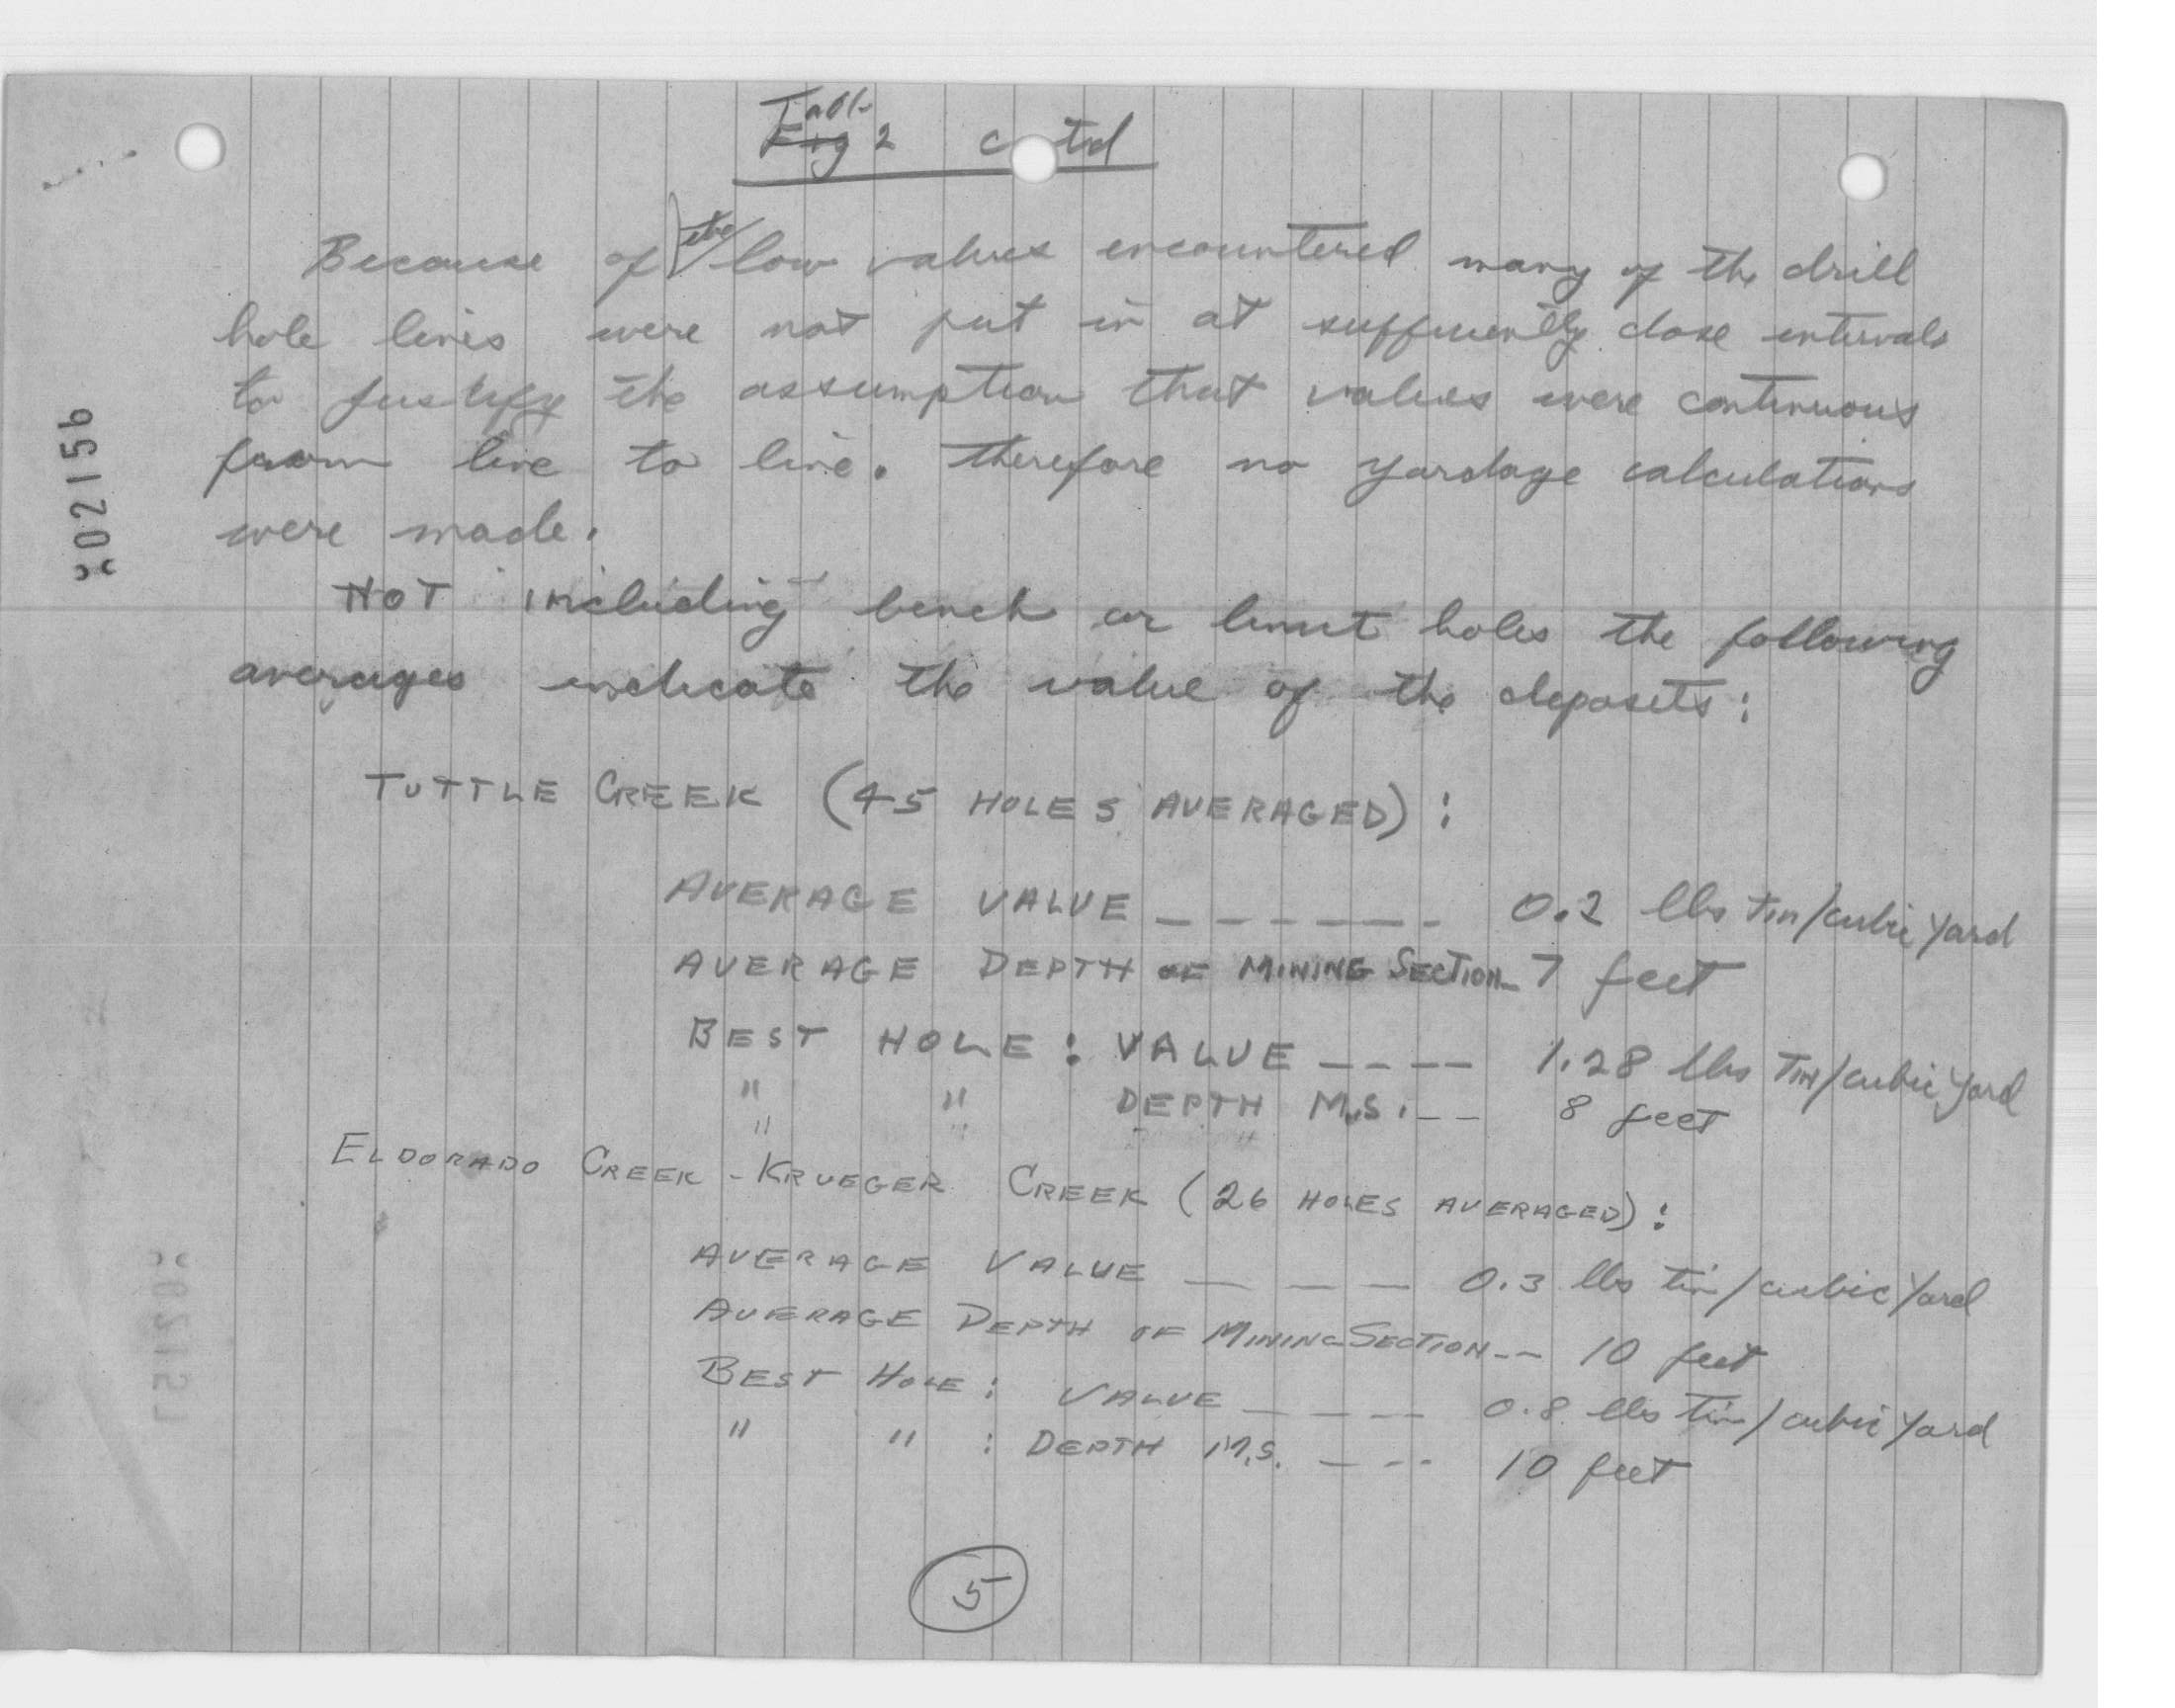 Table
Fig 2 contd
Because of the low values encountered many of the drill
hole lines were not put in at sufficiently close intervals
to justify the assumption that values were continuous
from line to line. Therefore no yardage calculations
were made.
NOT including bench or limit holes the following
averages indicate the value of the deposits:
TUTTLE CREEK (45 HOLES AVERAGED):
AVERAGE VALUE ------- 0.2 lbs tin/cubic yard
AVERAGE DEPTH OF MINING SECTION - 7 feet
BEST HOLE: VALUE ---- 1.28 lbs Tin/cubic yard
" " DEPTH M.S. -- 8 feet
" " "
ELDORADO CREEK - KRUEGER CREEK (26 HOLES AVERAGED):
AVERAGE VALUE ---- 0.3 lbs tin/cubic yard
AVERAGE DEPTH OF MINING SECTION -- 10 feet
BEST HOLE: VALUE ---- 0.8 lbs Tin/cubic yard
" " : DEPTH M.S. --- 10 feet
5